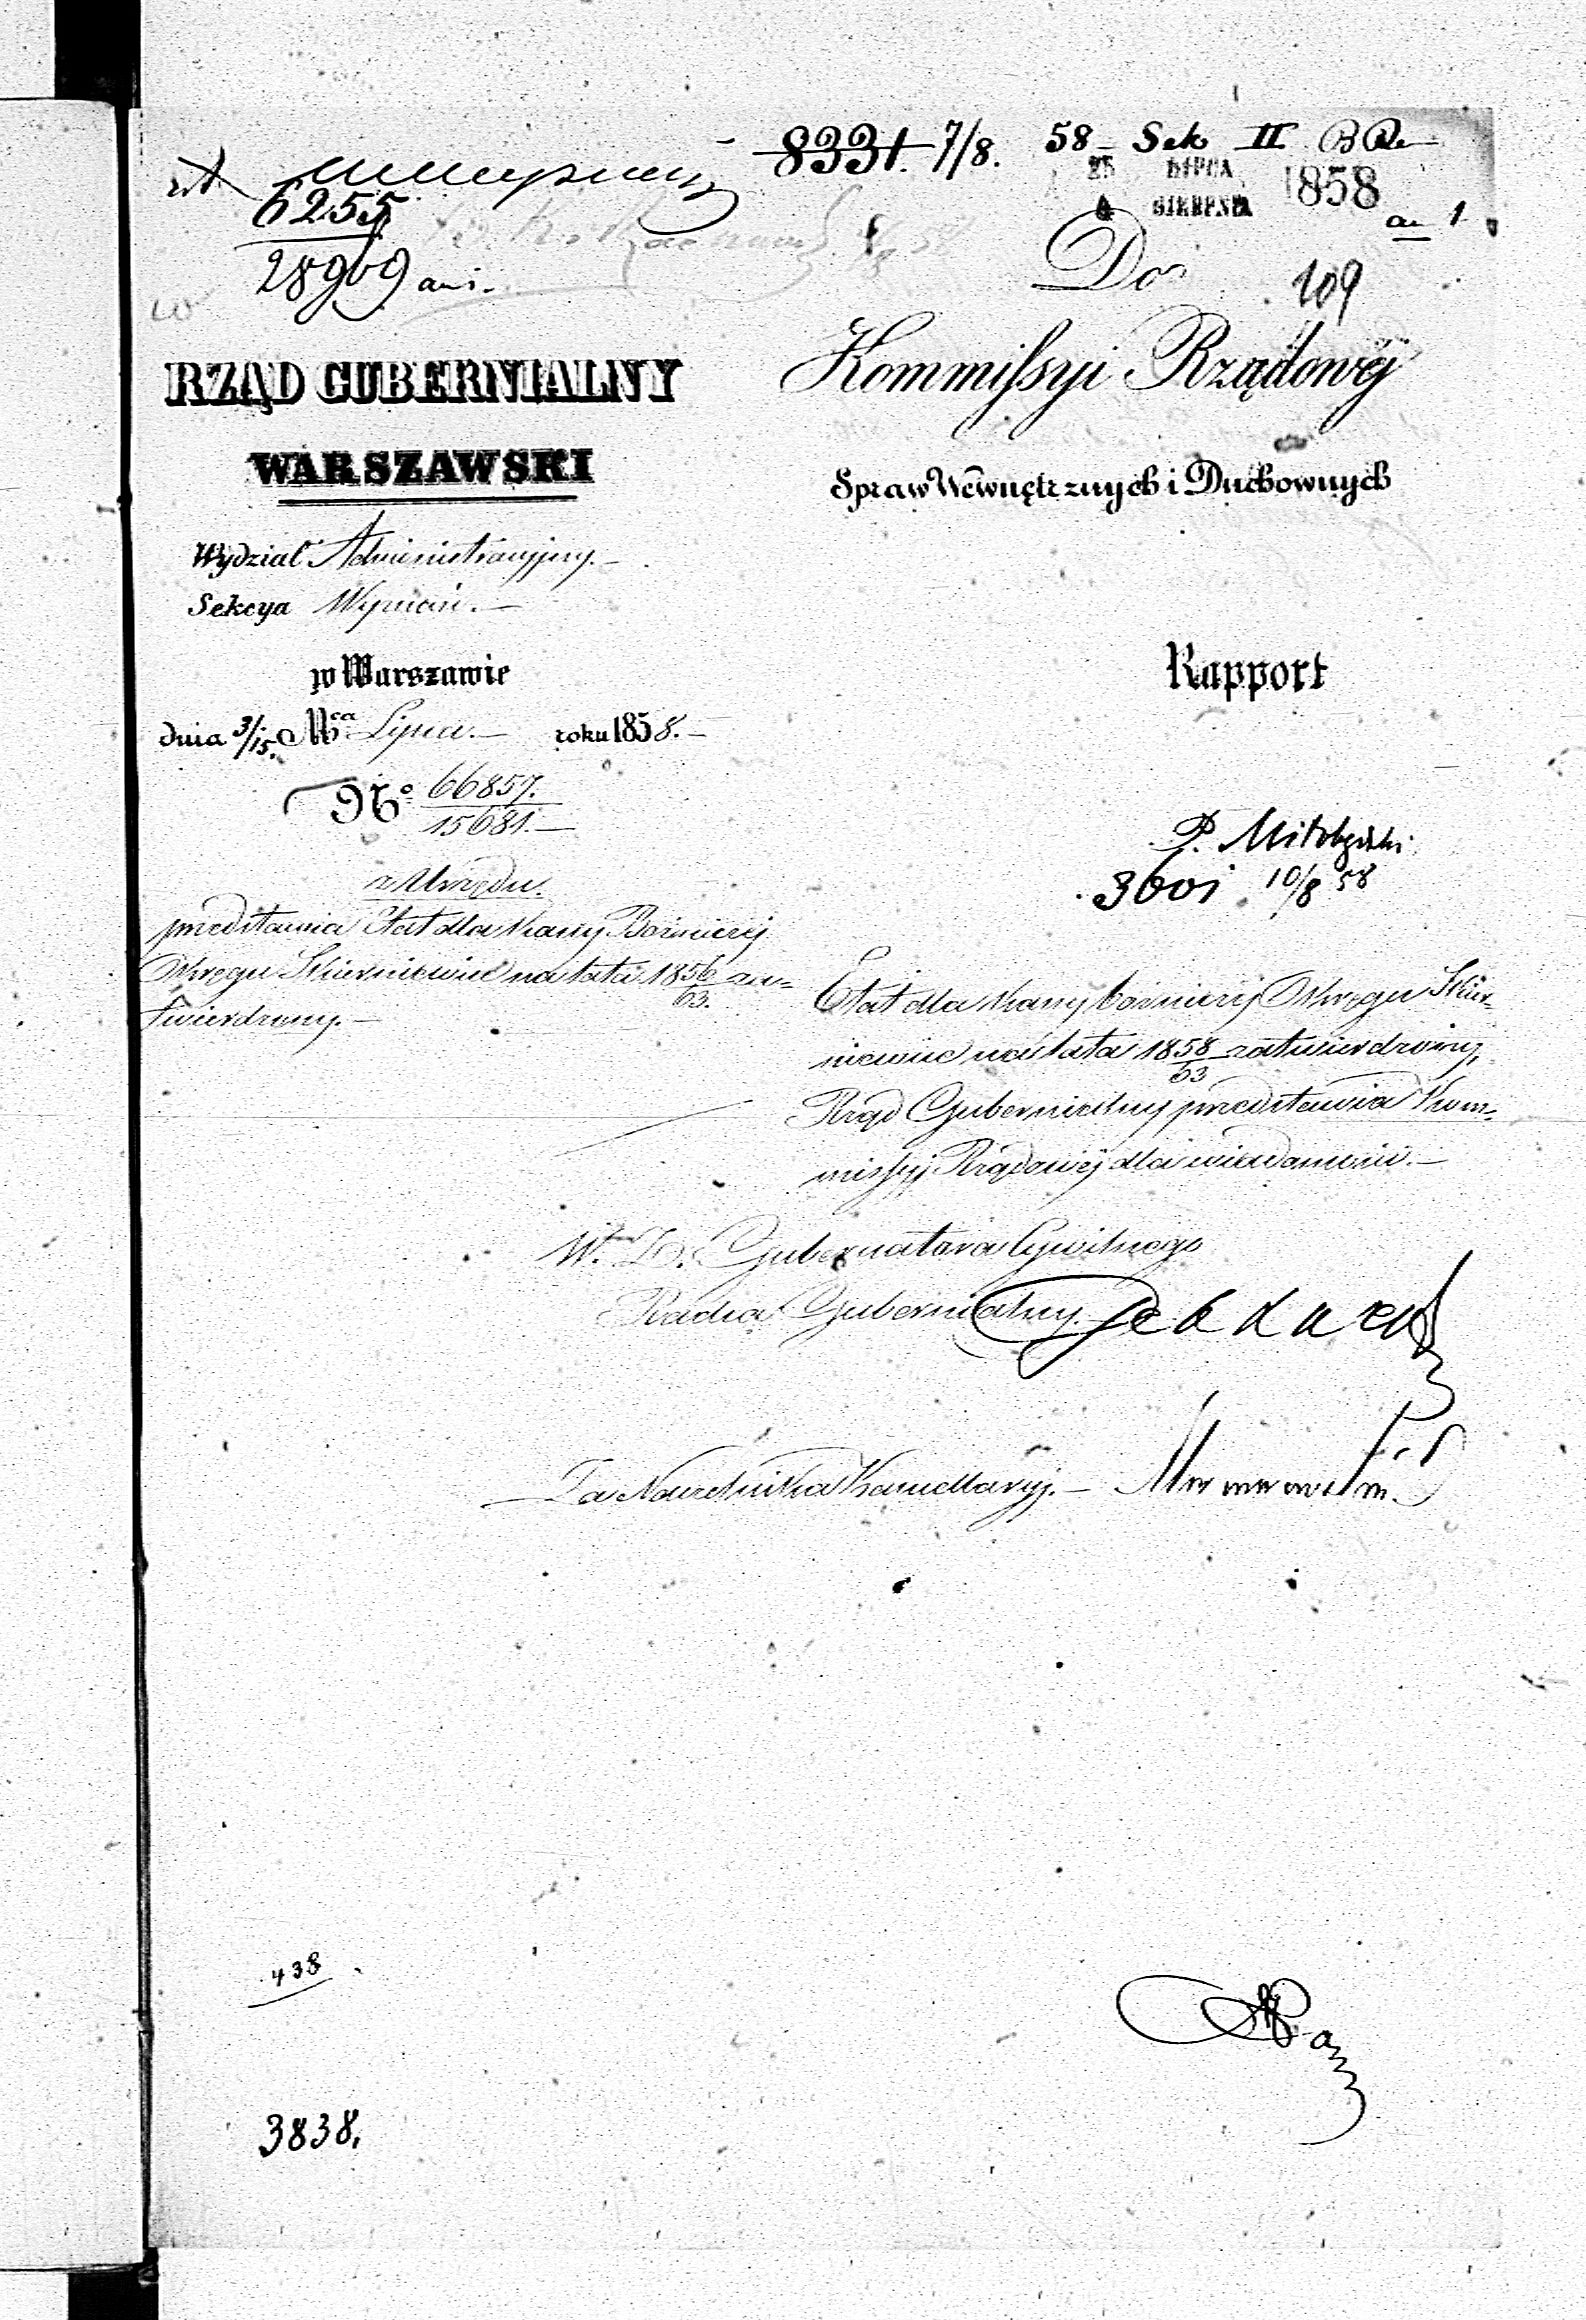 8331. 7/8. 58 – Sek II
25 LIPCA
4 SIERPNIA 1858
an 1
6255
28969 an 1.
Do
109
Kommissyi Rządowéj
Spraw Wewnętrznych i Duchownych
RZĄD GUBERNIALNY
WARSZAWSKI
Wydział Administracyjny. –
Sekcya Wyznań. –
w Warszawie
dnia 3/15. Mca Lipca. – roku 1858. –
No 66857.
15681. –
Rapport
z Urzędu.
przedstawia Etat dla Kassy Bożniczej
Okręgu Skierniewice na lata 1858/63. za=
twierdzony. –
P.
3601 10/8 58
Etat dla Kassy bożniczej Okręgu Skier-
niewice na lata 1858/63 zatwierdzony,
Rząd Gubernialny przedstawia Kom-
missyj Rządowéj dla wiadomości. –
W. Z. Gubernatora Cywilnego
Radca Gubernialny.
Za Naczelnika Kancellaryj. –
438
3838.